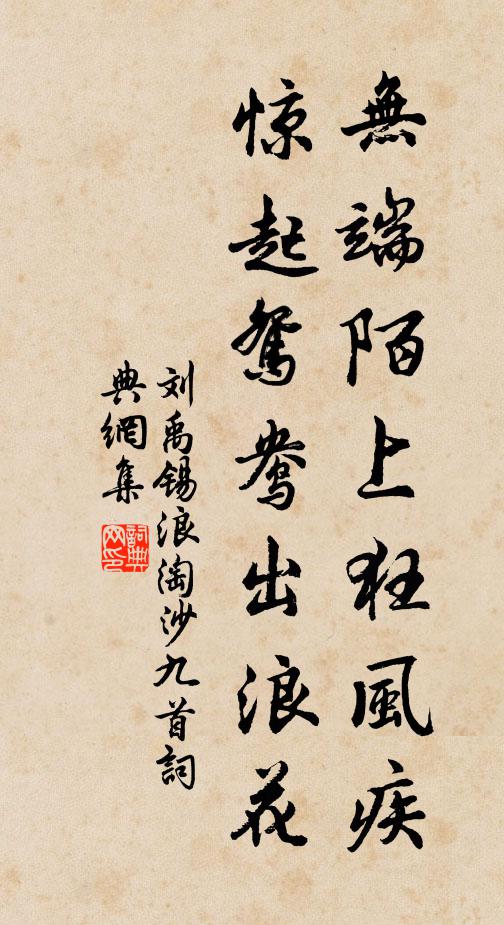 無端陌上狂風疾
惊起鴛鴦出浪花
刘禹锡浪淘沙九首詞
典網集
詞典网印